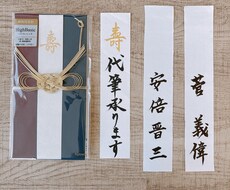 寿
寿
代筆承ります
安倍晋三
菅義偉